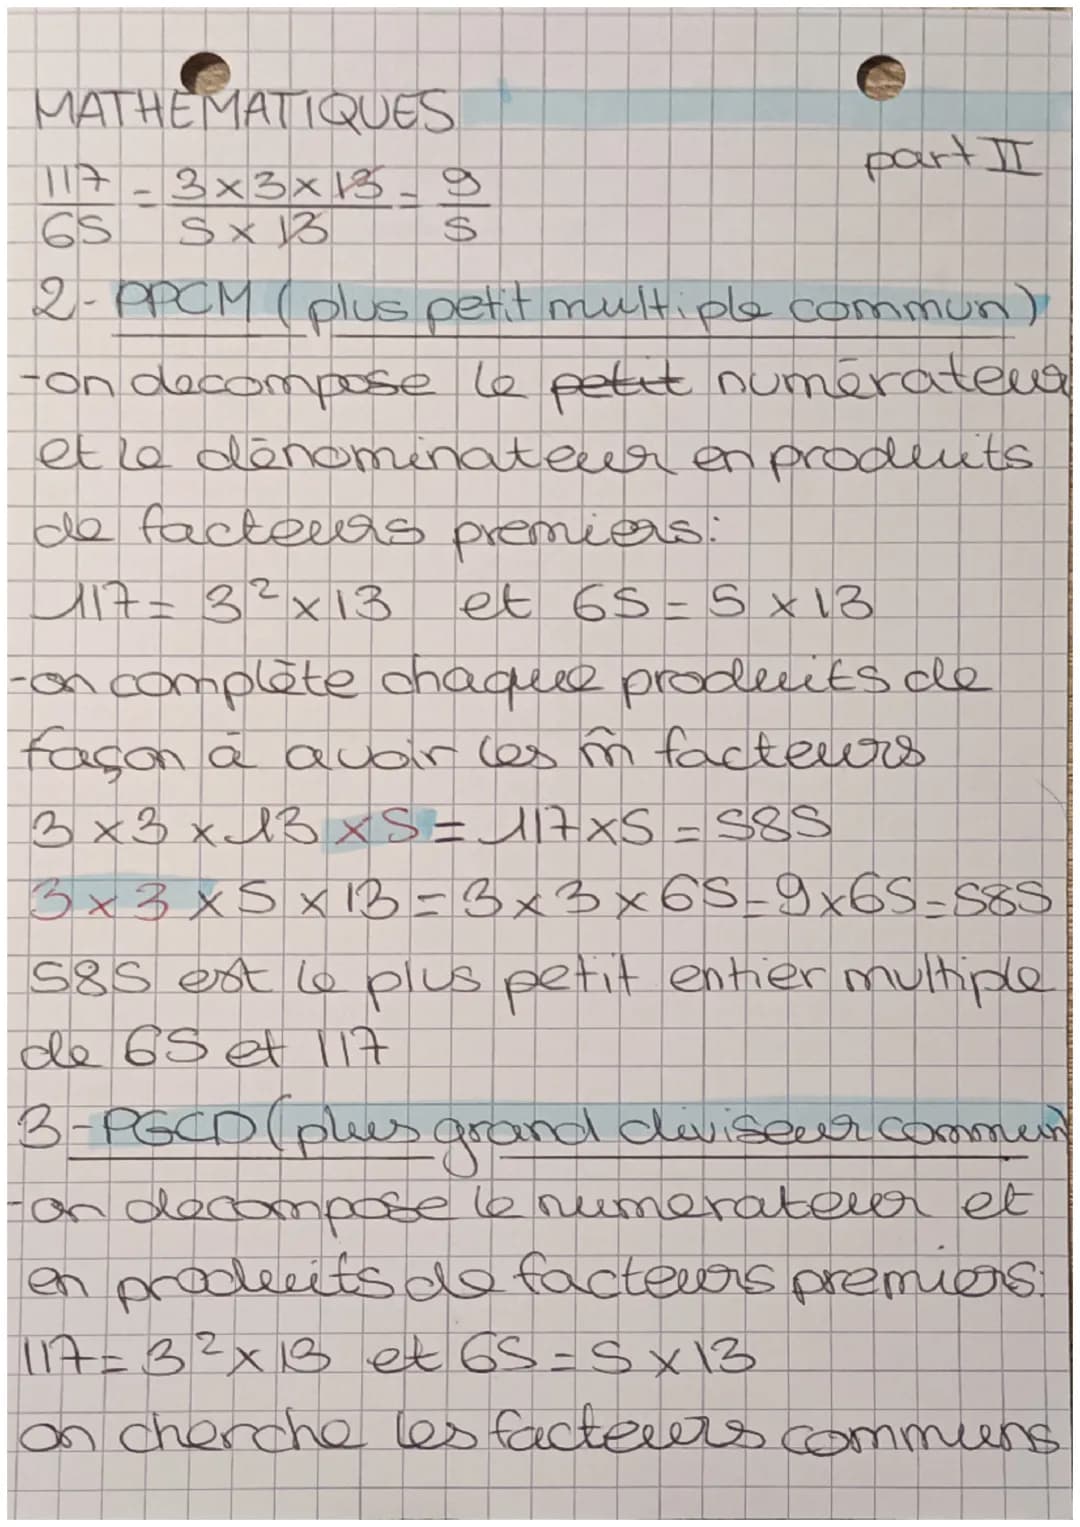 MATHÉMATIQUES
part II
117/65 = 3x3x13/5x13 = 9/5
2- PPCM (plus petit multiple commun)
-on decompose le petit numérateur
et le dénominateur en produits
de facteurs premiers:
117 = 3² x 13 et 65 = 5 x 13
-on complète chaque produits de
façon à avoir les m̂ facteurs
3 x 3 x 13 x 5 = 117 x 5 = 585
3 x 3 x 5 x 13 = 3 x 3 x 65 = 9 x 65 = 585
585 est le plus petit entier multiple
de 65 et 117
3-PGCD (plus grand diviseur commun)
-on decompose le numerateur et
en produits de facteurs premiers:
117 = 3² x 13 et 65 = 5 x 13
on cherche les facteurs communs